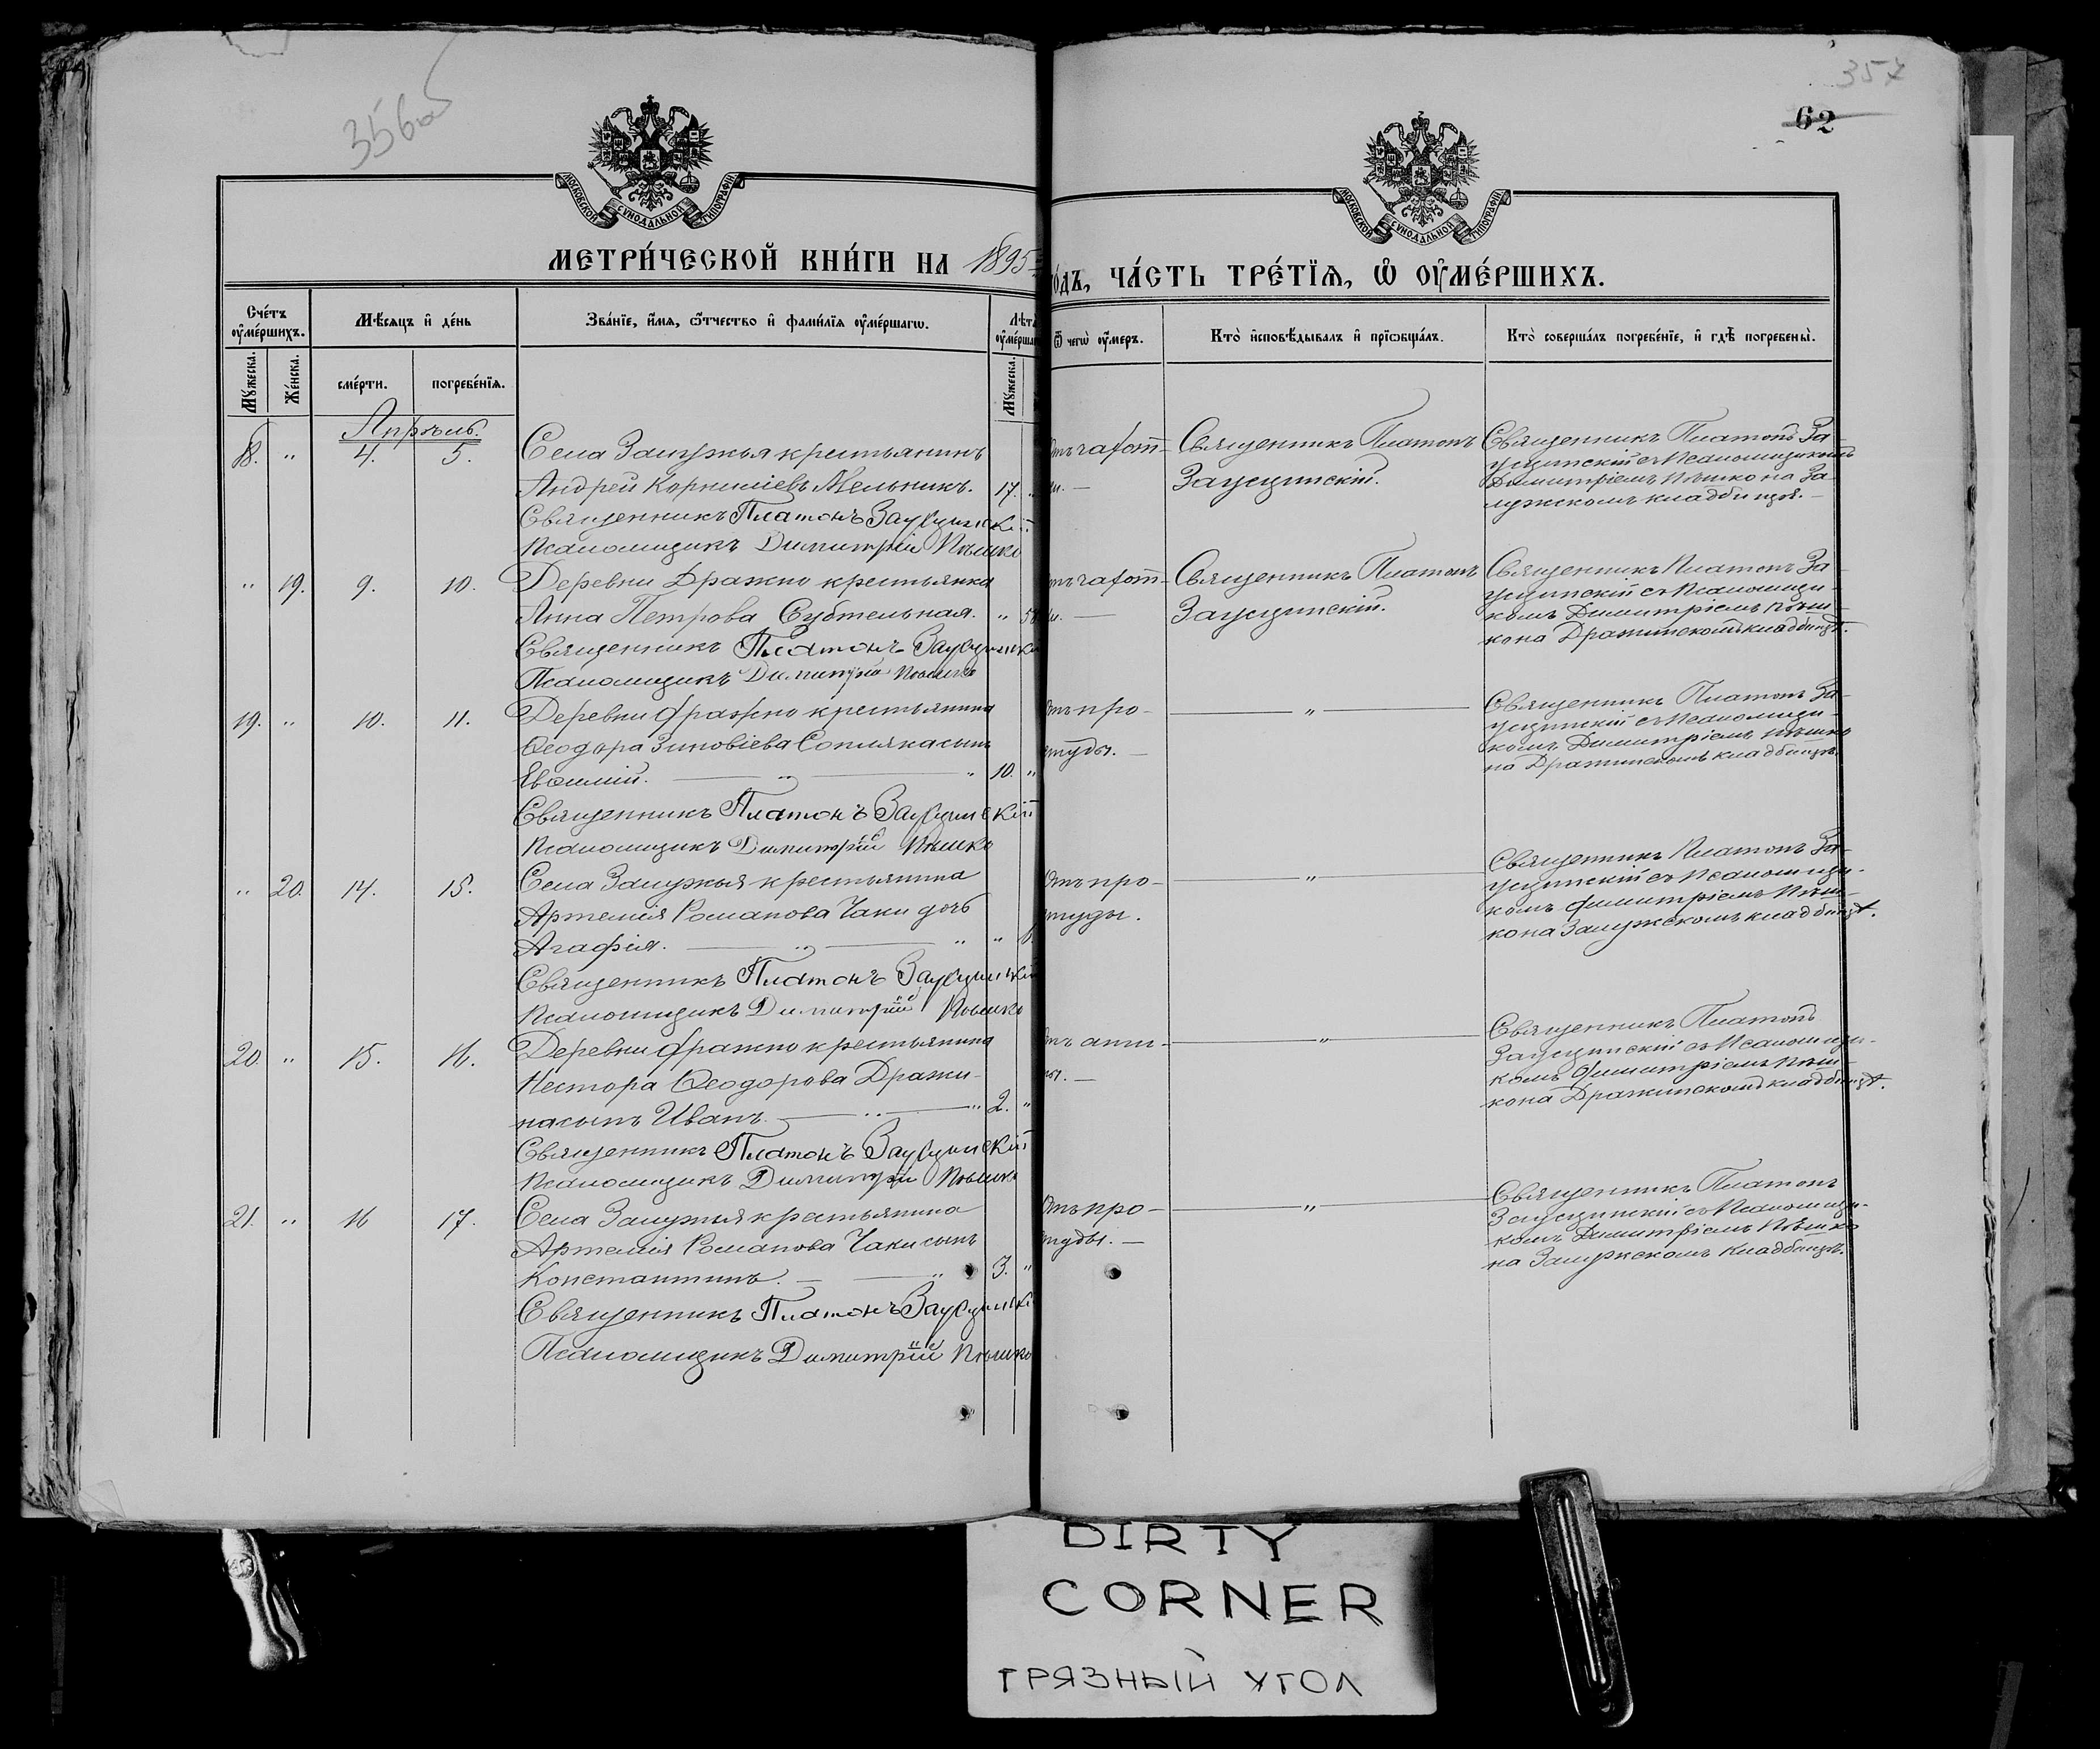 356об
357
62
МОСКОВСКОЙ СУНОДАЛЬНОЙ ТИПОГРАФІИ
МОСКОВСКОЙ СУНОДАЛЬНОЙ ТИПОГРАФІИ
МЕТРИ́ЧЕСКОЙ КНИ́ГИ НА 1895
го́дъ, ЧА́СТЬ ТРЕ́ТЇѦ, Ѿ ОУ҆МЕ́РШИХЪ.
Сче́тъ оу҆ме́ршихъ.
Мꙋ́жеска.
Же́нска.
Мѣ́сяцъ и҆ де́нь
сме́рти.
погребе́нїѧ.
Зва́нїе, и҆́мѧ, ѻ҆́тчество и҆ фами́лїѧ оу҆ме́ршагѡ.
Лѣта
оу҆ме́рша
Мꙋ́жеска.
Ѿ чегѡ̀ оу҆́меръ.
Кто̀ и҆сповѣ́дывалъ и҆ прїѡбща́лъ.
Кто̀ соверша́лъ погребе́нїе, и҆ гдѣ̀ погребены̀.
Апрѣль.
18. " 4. 5. Села Залужья крестьянинъ
Андрей Корниліевъ Мельникъ. 17. "
Священникъ Платонъ Заусцинскій
Псаломщикъ Димитрій Пѣшко
отъ чахот-
ки. —
Священникъ Платонъ
Заусцинскій.
Священникъ Платонъ За-
усцинскій съ Псаломщикомъ
Димитріемъ Пѣшко на За-
лужскомъ кладбищѣ. —
" 19. 9. 10. Деревни Дражно крестьянка
Анна Петрова Субтельная. "
Священникъ Платонъ Заусцинскій
Псаломщикъ Димитрій Пѣшко
отъ чахот-
ки. —
Священникъ Платонъ
Заусцинскій.
Священникъ Платонъ За-
усцинскій съ Псаломщи-
комъ Димитріемъ Пѣш-
ко на Дражинскомъ кладбищѣ.
19. " 10. 11. Деревни Дражно крестьянина
Ѳеодора Зиновіева сынъ
Евѳимій. — " — " 10. "
Священникъ Платонъ Заусцинскій
Псаломщикъ Димитрій Пѣшко
Отъ про-
студы. —
— " —
Священникъ Платонъ За-
усцинскій съ Псаломщи-
комъ Димитріемъ Пѣшко
на Дражинскомъ кладбищѣ.
" 20. 14. 15. Села Залужья крестьянина
Артемія Романова Чаки дочь
Агафія. — " — " "
Священникъ Платонъ Заусцинскій
Псаломщикъ Димитрій Пѣшко
Отъ про-
студы.
— " —
Священникъ Платонъ За-
усцинскій съ Псаломщи-
комъ Димитріемъ Пѣш-
ко на Залужскомъ кладбищѣ.
20. " 15. 16. Деревни Дражно крестьянина
Нестора Ѳеодорова Дражи-
на сынъ Иванъ. — " — " 2. "
Священникъ Платонъ Заусцинскій
Псаломщикъ Димитрій Пѣшко
— " —
Священникъ Платонъ
Заусцинскій съ Псаломщи-
комъ Димитріемъ Пѣш-
ко на Дражинскомъ кладбищѣ.
21. " 16 17. Села Залужья крестьянина
Артемія Романова Чаки сынъ
Константинъ. — — " 3. "
Священникъ Платонъ Заусцинскій
Псаломщикъ Димитрій Пѣшко
Отъ про-
студы. —
— " —
Священникъ Платонъ
Заусцинскій съ Псаломщи-
комъ Димитріемъ Пѣшко
на Залужскомъ кладбищѣ.
DIRTY
CORNER
ГРЯЗНЫЙ УГОЛ